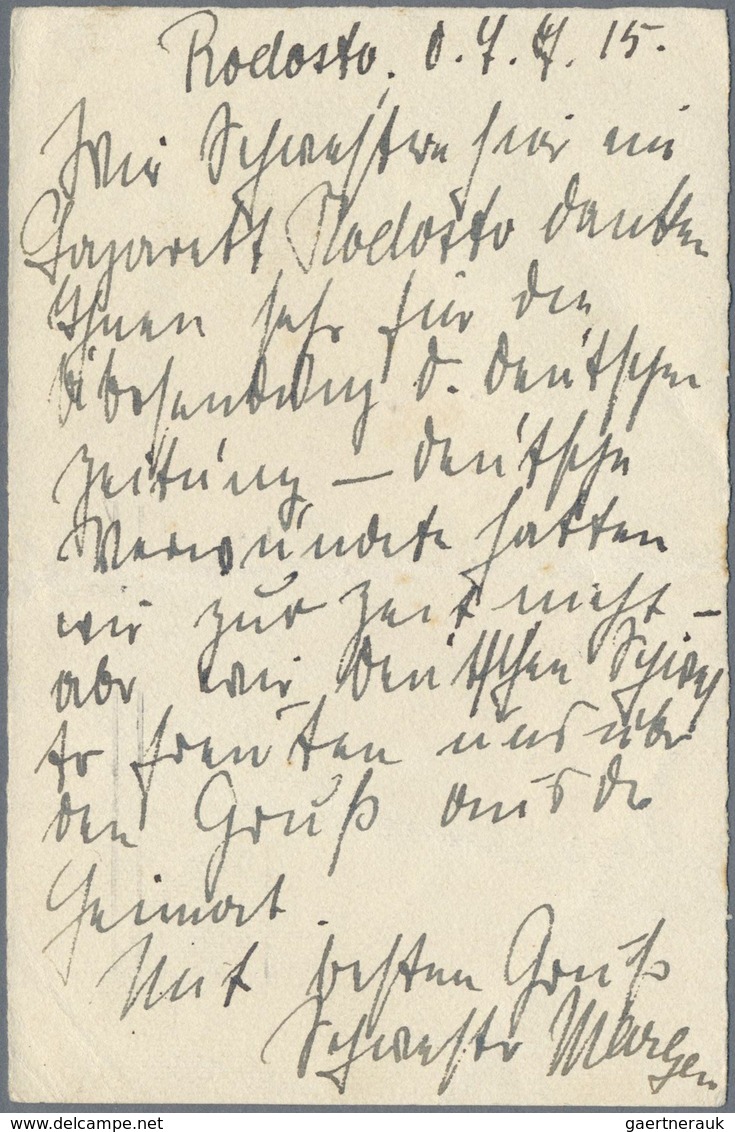 Rodosto, d. 7. 7. 15.
Wir Schwestern hier im
Lazarett Rodosto danken
Ihnen sehr für die
Übersendung d. deutschen
Zeitung – deutsche
Verwundete hatten
wir zur Zeit nicht –
aber wir deutschen Schwes
ter freuten uns über
den Gruß aus der
Heimat.
Mit besten Gruß
Schwester
gaertnerauk @ www.delcampe.net